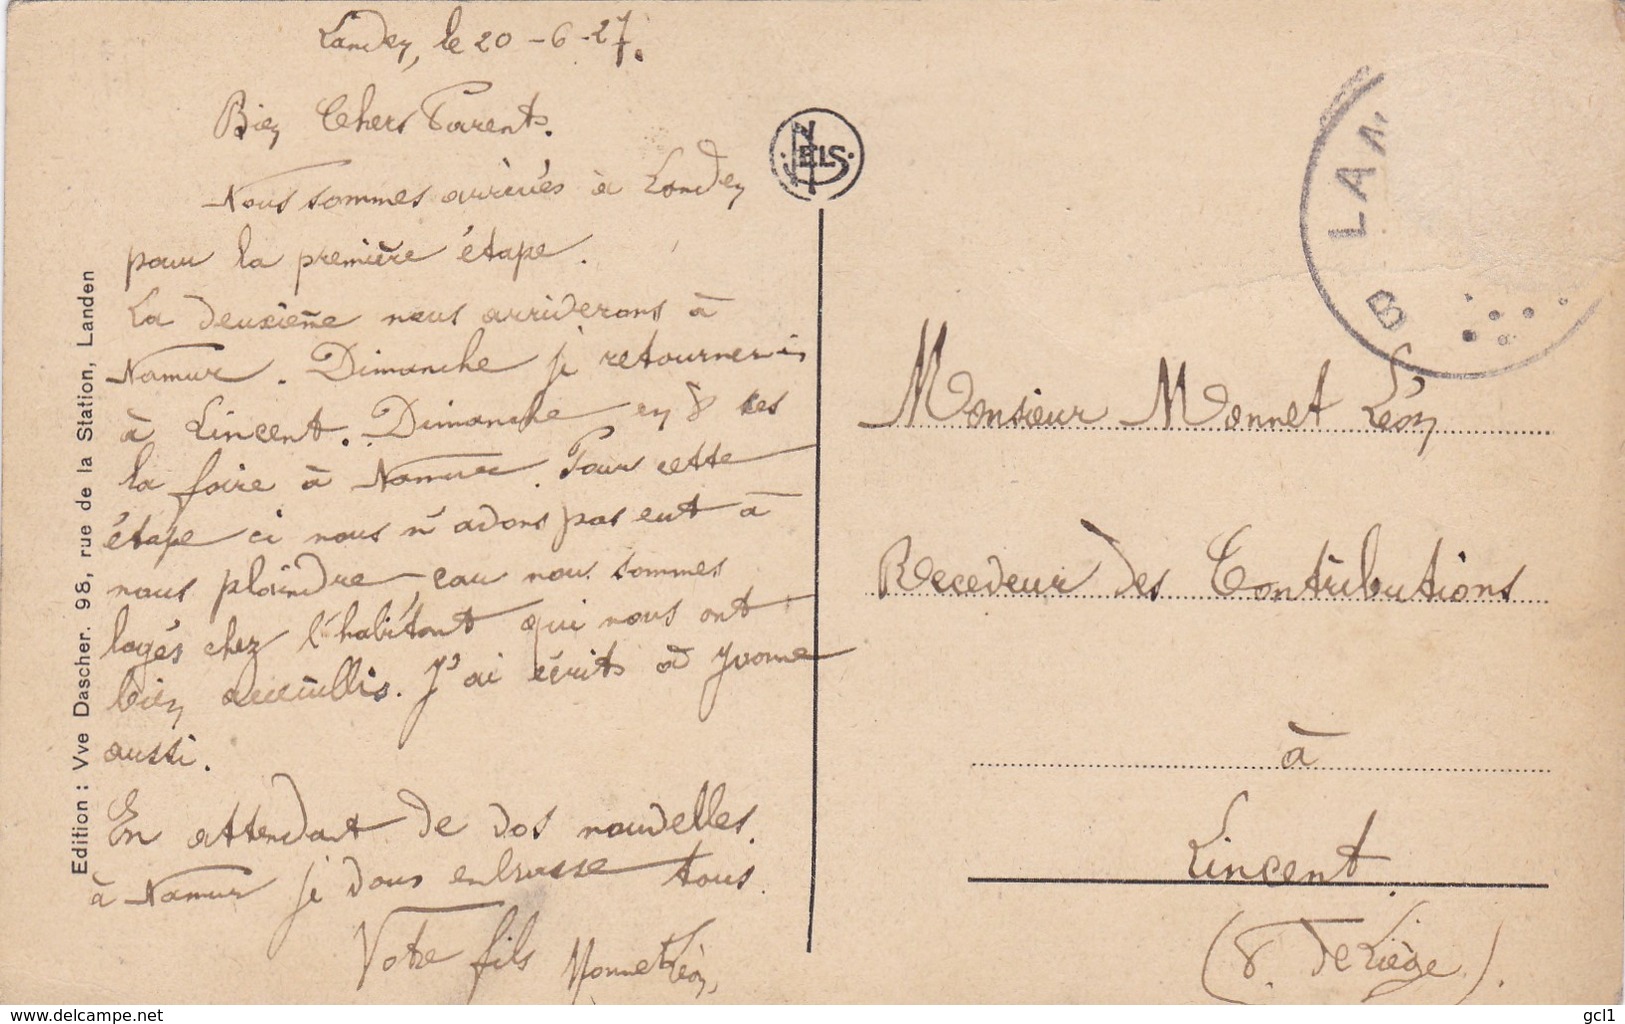 Landen, le 20-6-27.
Bien Chers Parents.
Nous sommes arrivés à Landen
pour la première étape.
La deuxième nous arriverons à
Namur. Dimanche je retournerais
à Lincent. Dimanche en 8
la foire à Namur. Pour cette
étape ci nous n'avons pas eut à
nous plaindre, car nous sommes
logés chez l'habitant qui nous ont
bien acceuillis. J'ai écrits à Yvonne
aussi.
En attendant de vos nouvelles.
à Namur je vous enbrasse tous.
Votre fils Monnet Léon.
Edition : Vve Dascher. 98, rue de la Station, Landen
NELS
LAN
B
Monsieur Monnet Léon
Receveur des Contributions
à
Lincent.
(P. de Liège).
www.delcampe.net
gcl1